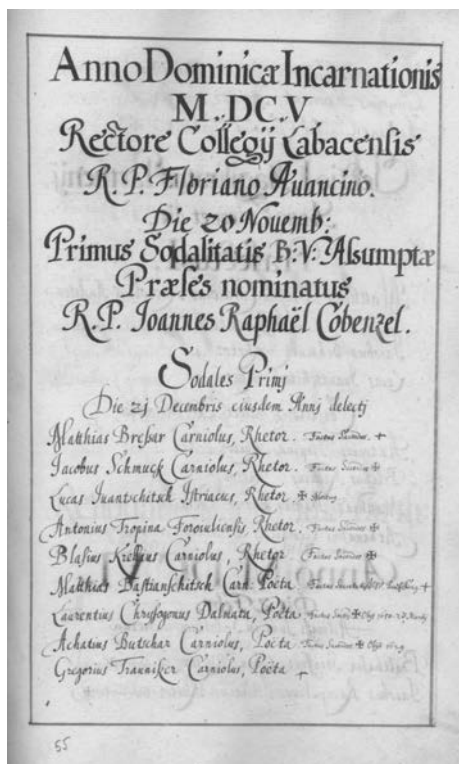 Anno Dominicæ Incarnationis
M.DC.V
Rectore Collegij Labacensis
R.P. Floriano Auancino.
Die 20 Nouemb:
Primus Sodalitatis B:V: Assumptæ
Præses nominatus
R.P. Ioannes Raphaël Cobenzel.
Sodales Primj
Die 21 Decembris eiusdem Annj delectj
Matthias Bressar Carniolus, Rhetor. Factus Sacerdos +
Iacobus Schmuck Carniolus, Rhetor. Factus Sacerdos
Lucas Iuantschitsch Istriacus, Rhetor
Antonius Tropina Foroiuliensis, Rhetor. Factus Sacerdos
Blasius Carniolus, Rhetor. Factus Sacerdos
Matthias Bastianschitsch Carn. Poëta Factus +
Laurentius Chrysogonus Dalmata, Poëta Factus
Achatius Butschar Carniolus, Poëta Factus Sacerdos
Gregorius Carniolus, Poëta +
55